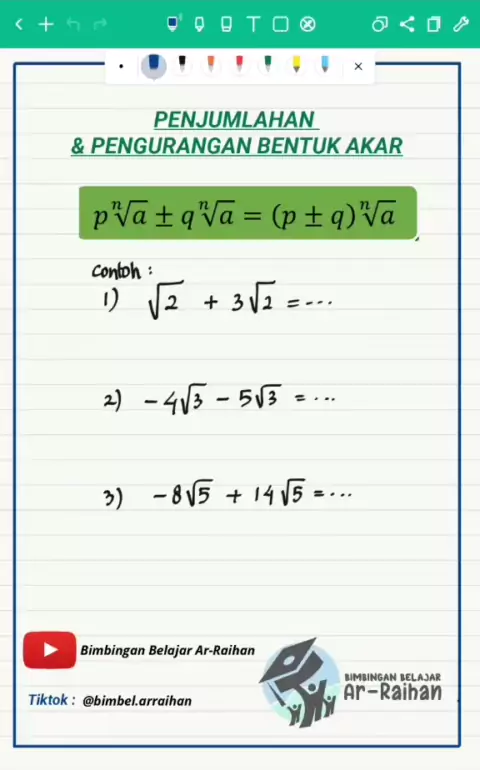 PENJUMLAHAN
& PENGURANGAN BENTUK AKAR
p ⁿ√a ± q ⁿ√a = (p ± q) ⁿ√a
Contoh :
1) √2 + 3√2 = ...
2) -4√3 - 5√3 = ...
3) -8√5 + 14√5 = ...
Bimbingan Belajar Ar-Raihan
BIMBINGAN BELAJAR
Ar-Raihan
Tiktok : @bimbel.arraihan